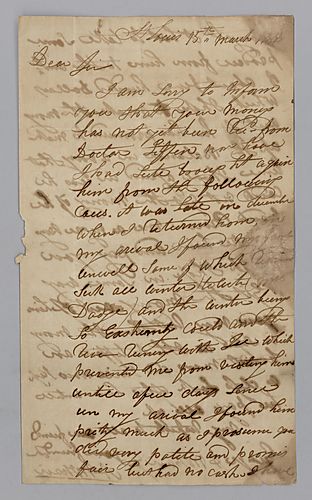 St Louis 15th March
Dear Sir
I am Sory to Inform
you that your Money
has not yet been Recd from
Doctor Tiffin nor have
I had Suite brought against
him from the following
Caus. it was late in december
when I returned home
my arival I found my
unwell Some of which
Sick all winter to wit
Dadge) and the winter being
So Exstreamly Cold and the
River runing with Ice which
prevented me from visiting him
untill a few days Since
un my arival I found him
prety much as I prosume you
did very polite and promis
fair but had no cash I